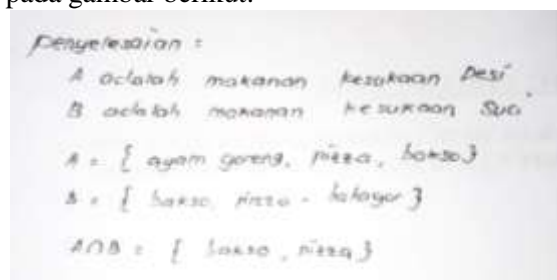 pada gambar berikut.
Penyelesaian :
A adalah makanan kesukaan Desi
B adalah makanan kesukaan Suci
A = { ayam goreng, pizza, bakso }
B = { bakso, pizza, batagor }
A∩B = { bakso, pizza }